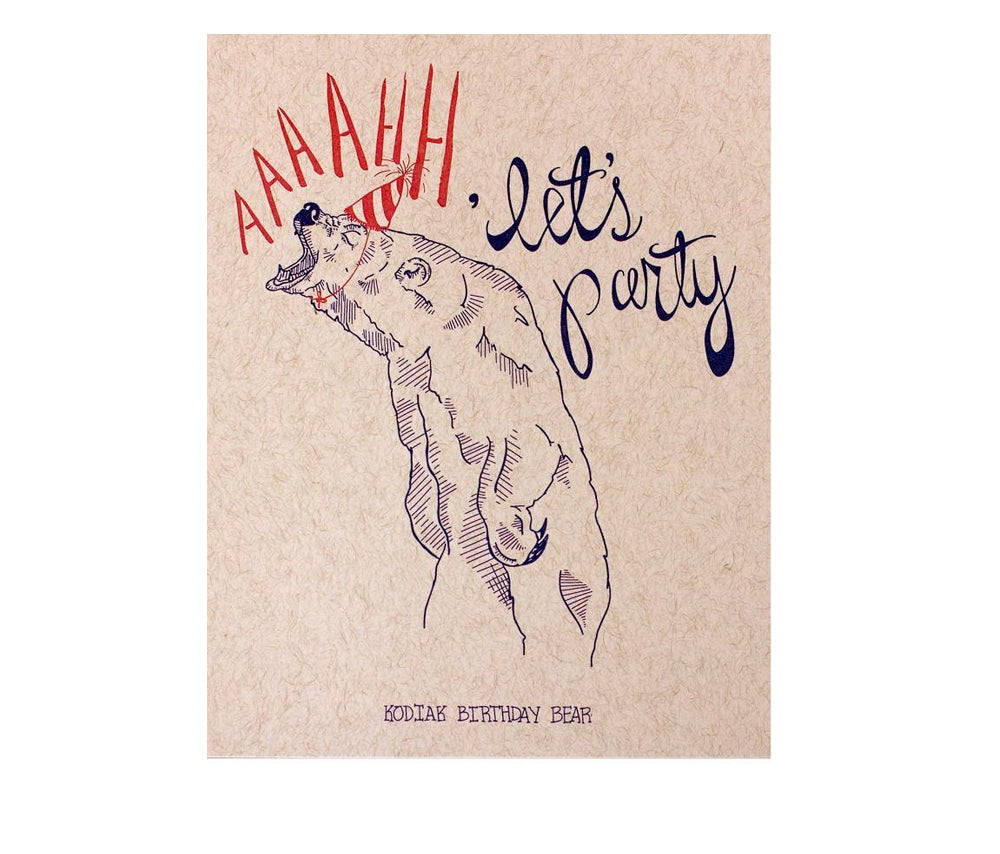 AAAAHH
'let's
party
KODIAK BIRTHDAY BEAR